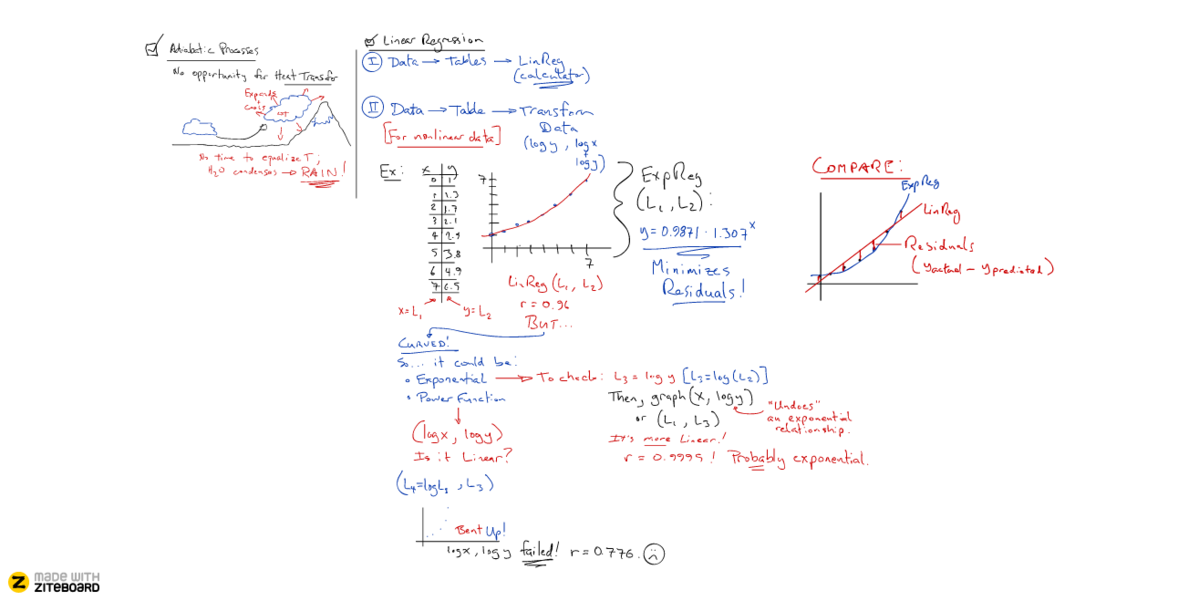 Adiabatic Processes
No opportunity for Heat Transfer
Expands
+
cools
HOT
No time to equalize T;
H₂O condenses → RAIN!
Linear Regression
I Data → Tables → LinReg
(calculator)
II Data → Table → Transform
Data
(log y, log x
log y)
[For nonlinear data]
Ex:
x y
0 1
1 1.3
2 1.7
3 2.1
4 2.9
5 3.8
6 4.9
7 6.5
x=L₁
y=L₂
7
7
LinReg (L₁, L₂)
r = 0.96
BUT...
ExpReg
(L₁, L₂):
y = 0.9871 · 1.307ˣ
Minimizes
Residuals!
COMPARE:
ExpReg
LinReg
Residuals
(yactual - ypredicted)
CURVED!
So... it could be:
• Exponential → To check: L₃ = log y [L₃=log(L₂)]
• Power Function
Then, graph (x, log y)
or (L₁, L₃)
"Undoes"
an exponential
relationship.
It's more Linear!
r = 0.9999! Probably exponential.
(log x, log y)
Is it Linear?
(L₄=logL₁, L₃)
Bent Up!
log x, log y failed! r = 0.776.
MADE WITH
ZITEBOARD